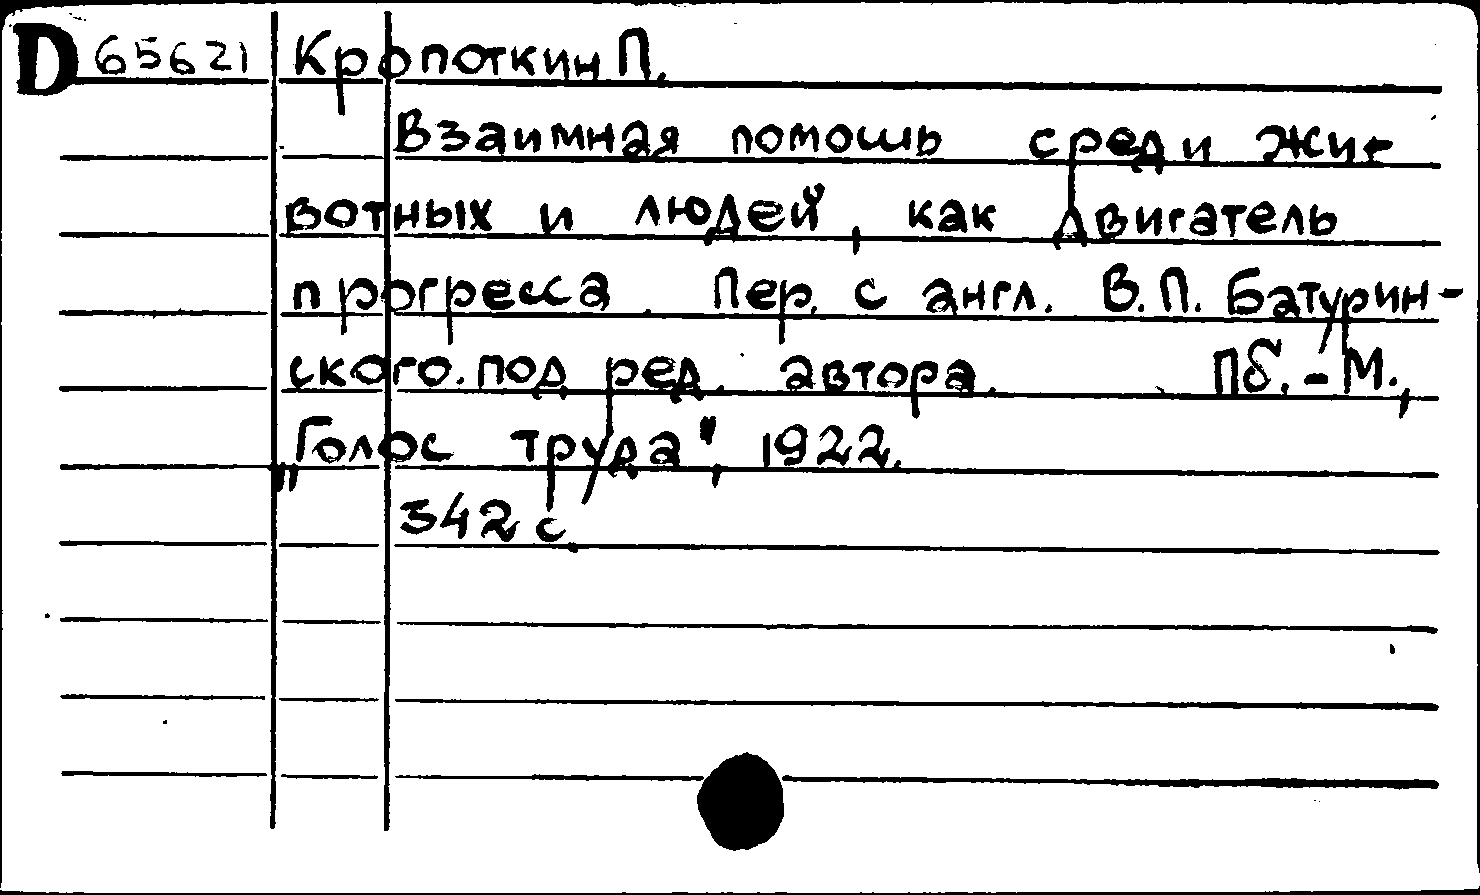 D 65621 Кропоткин П.
Взаимная помошь среди жи-
вотных и людей, как двигатель
прогресса. Пер. с англ. В.П. Батурин-
ского. под ред. автора. Пб. - М.,
„Голос труда", 1922.
342 с.